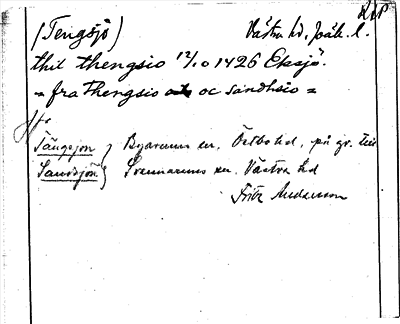 RAP
(Tengsjö) Västra hd, Jönk. l.
thit thengsio 12/10 1426 Eksjö.
= fra thengsio oc sandhsio =
Jfr
Tängsjön } Byarums sn. Östbo hd, på gr. till
Sandsjön } Svenarums sn. Västra hd
Fritz Andersson